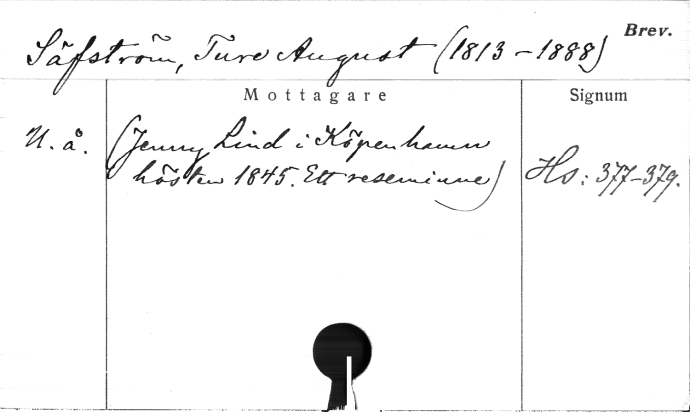 Brev.
Säfström, Ture August (1813-1888)
Mottagare
Signum
U. å.
(Jenny Lind i Köpenhamn
hösten 1845. Ett reseminne)
Hs: 377-379.